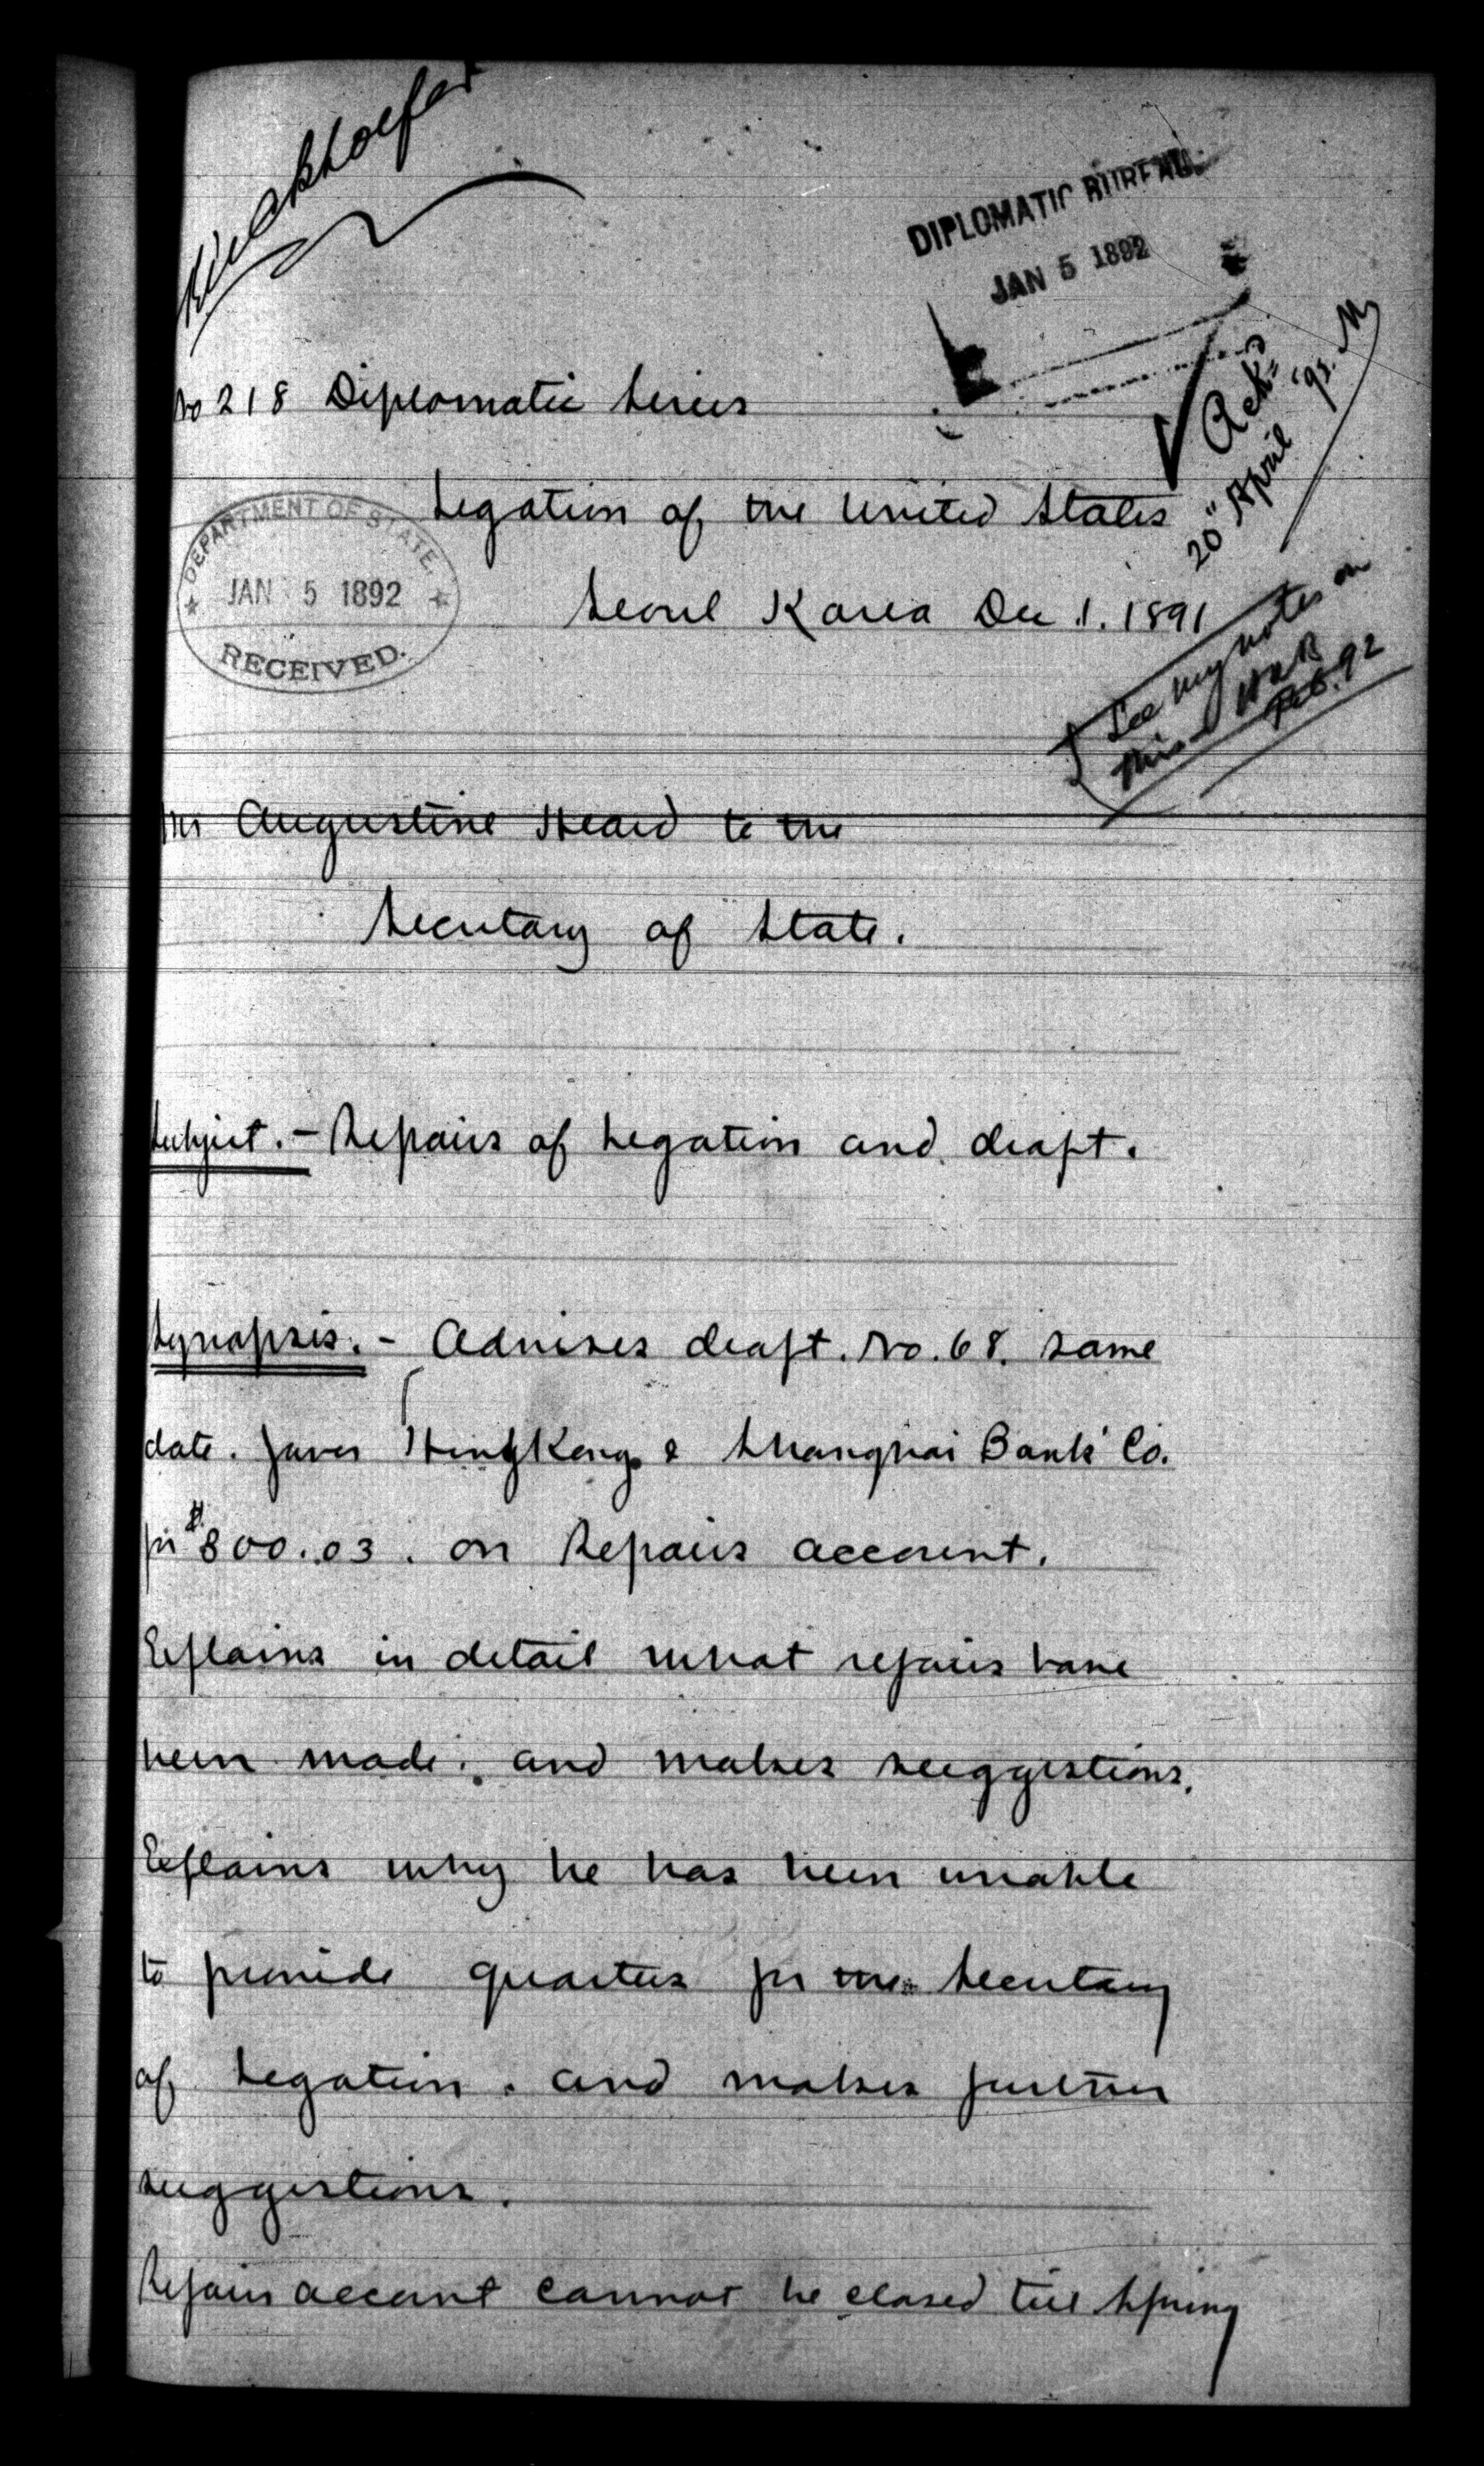 Kinckhoefer
DIPLOMATIC BUREAU.
JAN 5 1892
Ack'd
20" April '92. M
No 218 Diplomatic Series
Legation of the United States
DEPARTMENT OF STATE.
JAN 5 1892
RECEIVED.
Seoul Korea Dec. 1. 1891
See my notes on
this
Feb. 92
Mr Augustine Heard to the
Secretary of State.
Subject. - Repairs of Legation and draft.
Synopsis. - Advises draft. No. 68. same
date. favor HongKong & Shanghai Bank' Co.
for $800.03. on Repairs account.
Explains in detail what repairs have
been made; and makes suggestions.
Explains why he has been unable
to provide quarters for the Secretary
of Legation. and makes further
suggestions.
Repairs account cannot be closed till Spring